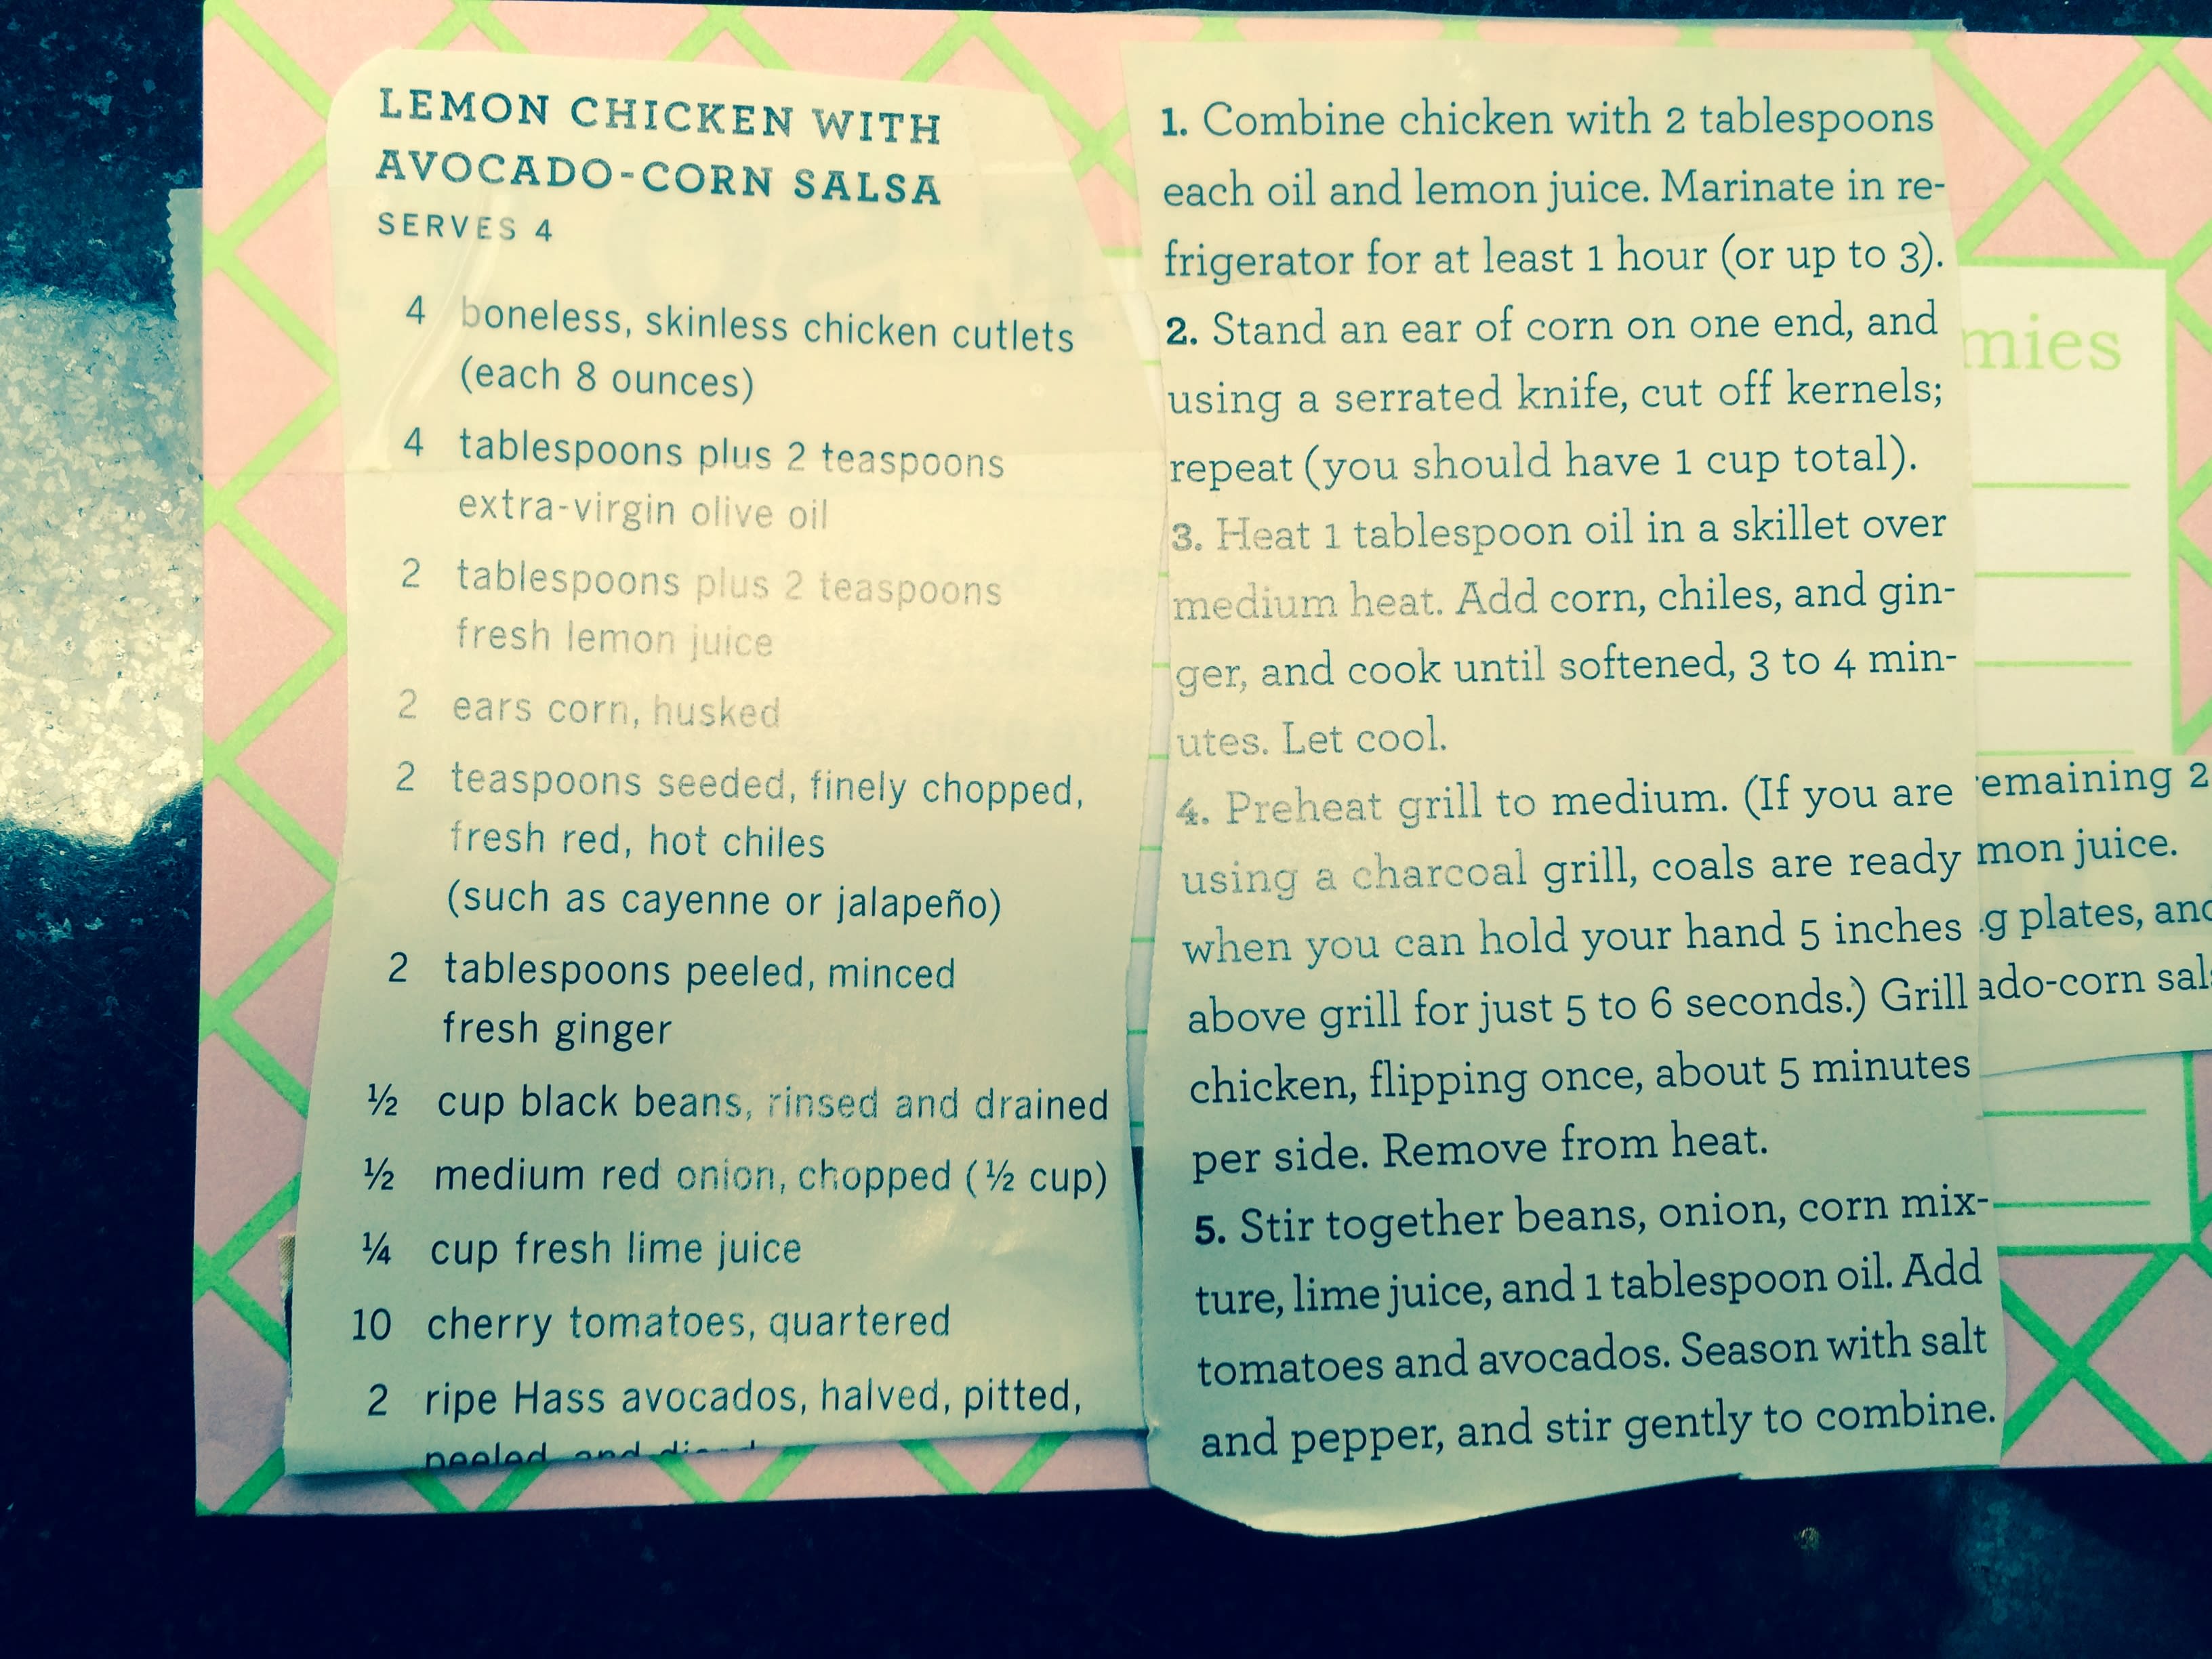 LEMON CHICKEN WITH
AVOCADO-CORN SALSA
SERVES 4
4 boneless, skinless chicken cutlets
(each 8 ounces)
4 tablespoons plus 2 teaspoons
extra-virgin olive oil
2 tablespoons plus 2 teaspoons
fresh lemon juice
2 ears corn, husked
2 teaspoons seeded, finely chopped,
fresh red, hot chiles
(such as cayenne or jalapeño)
2 tablespoons peeled, minced
fresh ginger
½ cup black beans, rinsed and drained
½ medium red onion, chopped (½ cup)
¼ cup fresh lime juice
10 cherry tomatoes, quartered
2 ripe Hass avocados, halved, pitted,
peeled, and diced
1. Combine chicken with 2 tablespoons
each oil and lemon juice. Marinate in re-
frigerator for at least 1 hour (or up to 3).
2. Stand an ear of corn on one end, and
using a serrated knife, cut off kernels;
repeat (you should have 1 cup total).
3. Heat 1 tablespoon oil in a skillet over
medium heat. Add corn, chiles, and gin-
ger, and cook until softened, 3 to 4 min-
utes. Let cool.
4. Preheat grill to medium. (If you are
using a charcoal grill, coals are ready
when you can hold your hand 5 inches
above grill for just 5 to 6 seconds.) Grill
chicken, flipping once, about 5 minutes
per side. Remove from heat.
5. Stir together beans, onion, corn mix-
ture, lime juice, and 1 tablespoon oil. Add
tomatoes and avocados. Season with salt
and pepper, and stir gently to combine.
mies
emaining 2
mon juice.
g plates, and
ado-corn sal